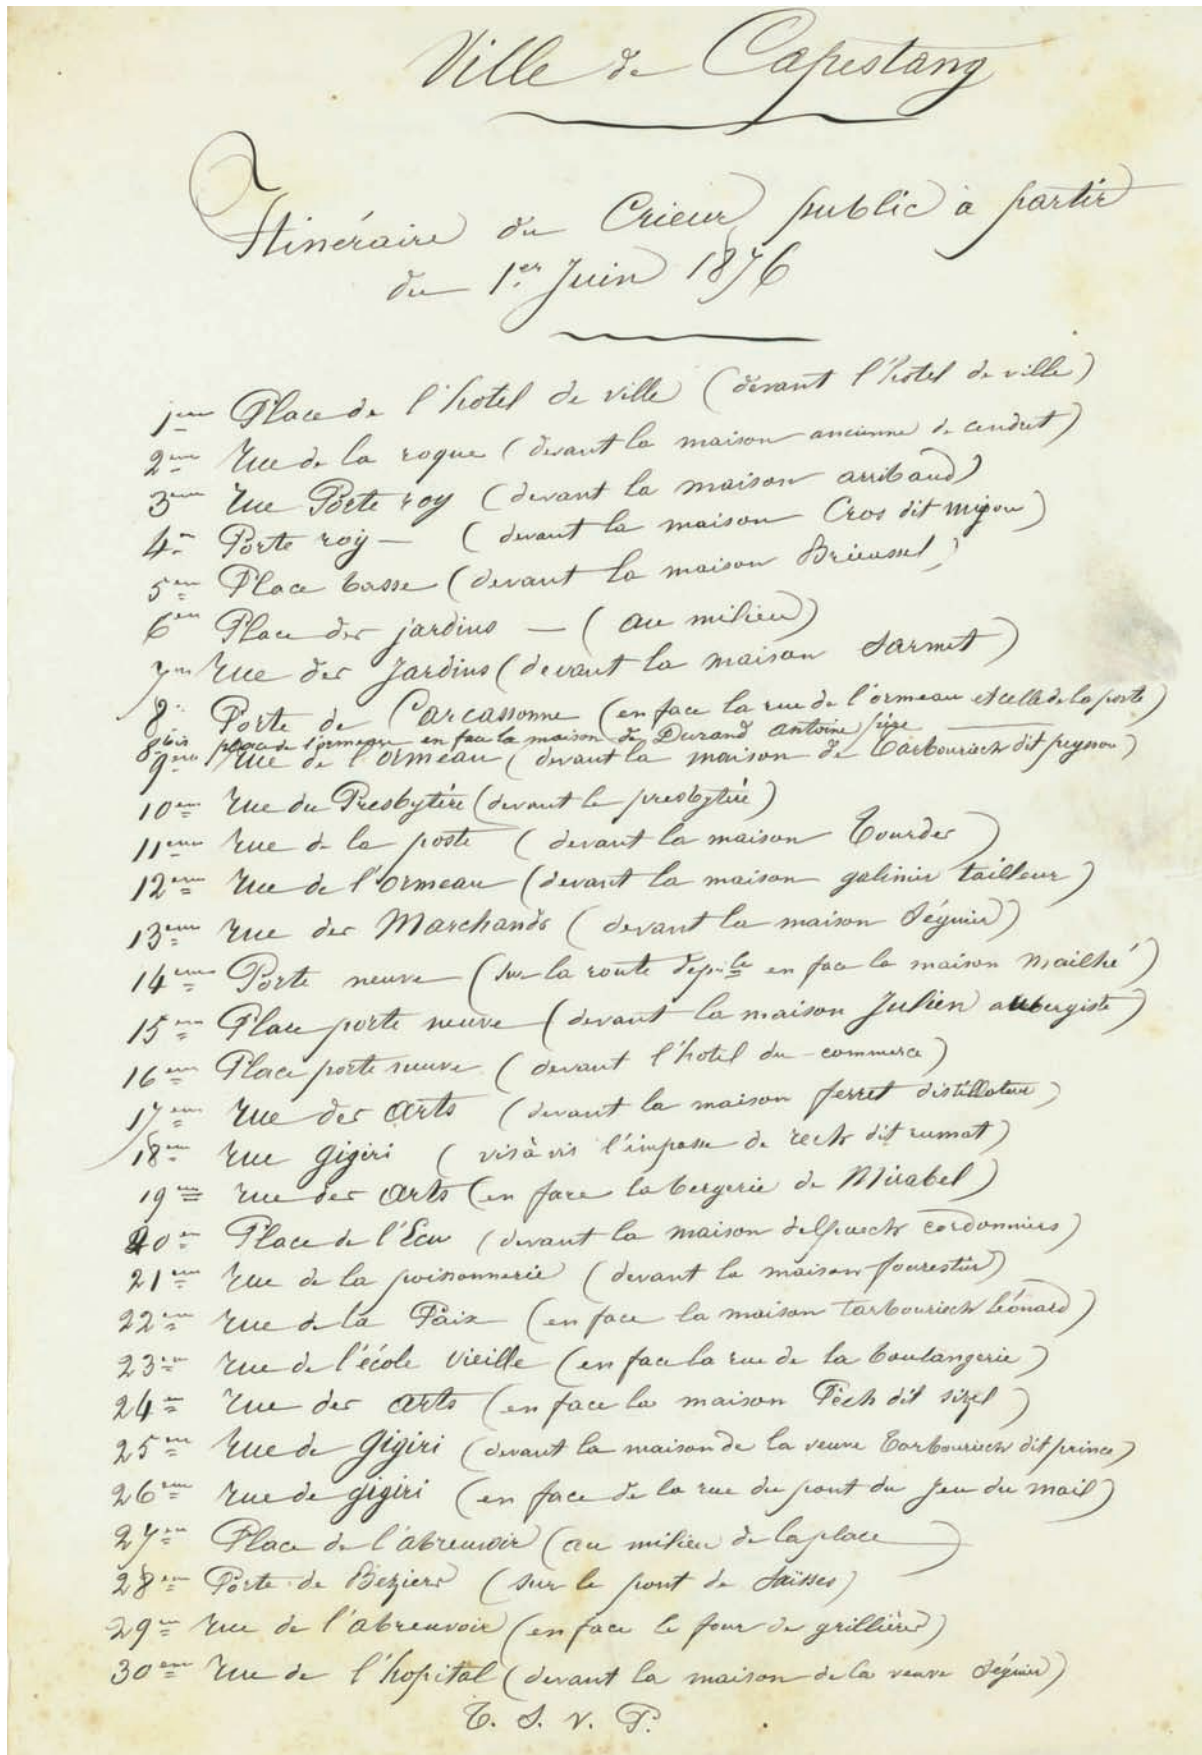 Ville de Capestang
Itinéraire du Crieur public à partir
du 1er Juin 1876
1em Place de l'hotel de ville (devant l'hotel de ville)
2em Rue de la roque (devant la maison ancienne de cendret)
3em Rue Porte roy (devant la maison arribaud)
4em Porte roy — (devant la maison Cros dit)
5em Place basse (devant la maison Brieussel)
6em Place des jardins — (au milieu)
7em Rue des Jardins (devant la maison Sarmet)
8em Porte de Carcassonne (en face la rue de l'ormeau et celle de la poste)
8bis place de l'ormeau en face la maison de Durand antoine père
9em Rue de l'Ormeau (devant la maison de Tarbouriech dit peyrou)
10em Rue du Presbytère (devant le presbytère)
11em Rue de la poste (devant la maison Tourder)
12em Rue de l'Ormeau (devant la maison galinier tailleur)
13em Rue des Marchands (devant la maison Séguier)
14em Porte neuve (sur la route dép.le en face la maison Mailhé)
15em Place porte neuve (devant la maison Julien aubergiste)
16em Place porte neuve (devant l'hotel du commerce)
17em Rue des arts (devant la maison ferret distillateur)
18em Rue gigiri (vis à vis l'impasse de rech dit rumat)
19em rue des arts (en face la bergerie de Mirabel)
20em Place de l'Ecu (devant la maison delpuech cordonniers)
21em Rue de la poissonnerie (devant la maison fourestier)
22em rue de la Paix (en face la maison tarbouriech léonard)
23em rue de l'école vieille (en face la rue de la boulangerie)
24em rue des arts (en face la maison Pech dit sizel)
25em rue de gigiri (devant la maison de la veuve Tarbouriech dit prince)
26em rue de gigiri (en face de la rue du pont du jeu du mail)
27em Place de l'abreuvoir (au milieu de la place)
28em Porte de Beziers (sur le pont de Saïsses)
29em rue de l'abreuvoir (en face le four de grillières)
30em rue de l'hopital (devant la maison de la veuve Séguier)
T. S. V. P.